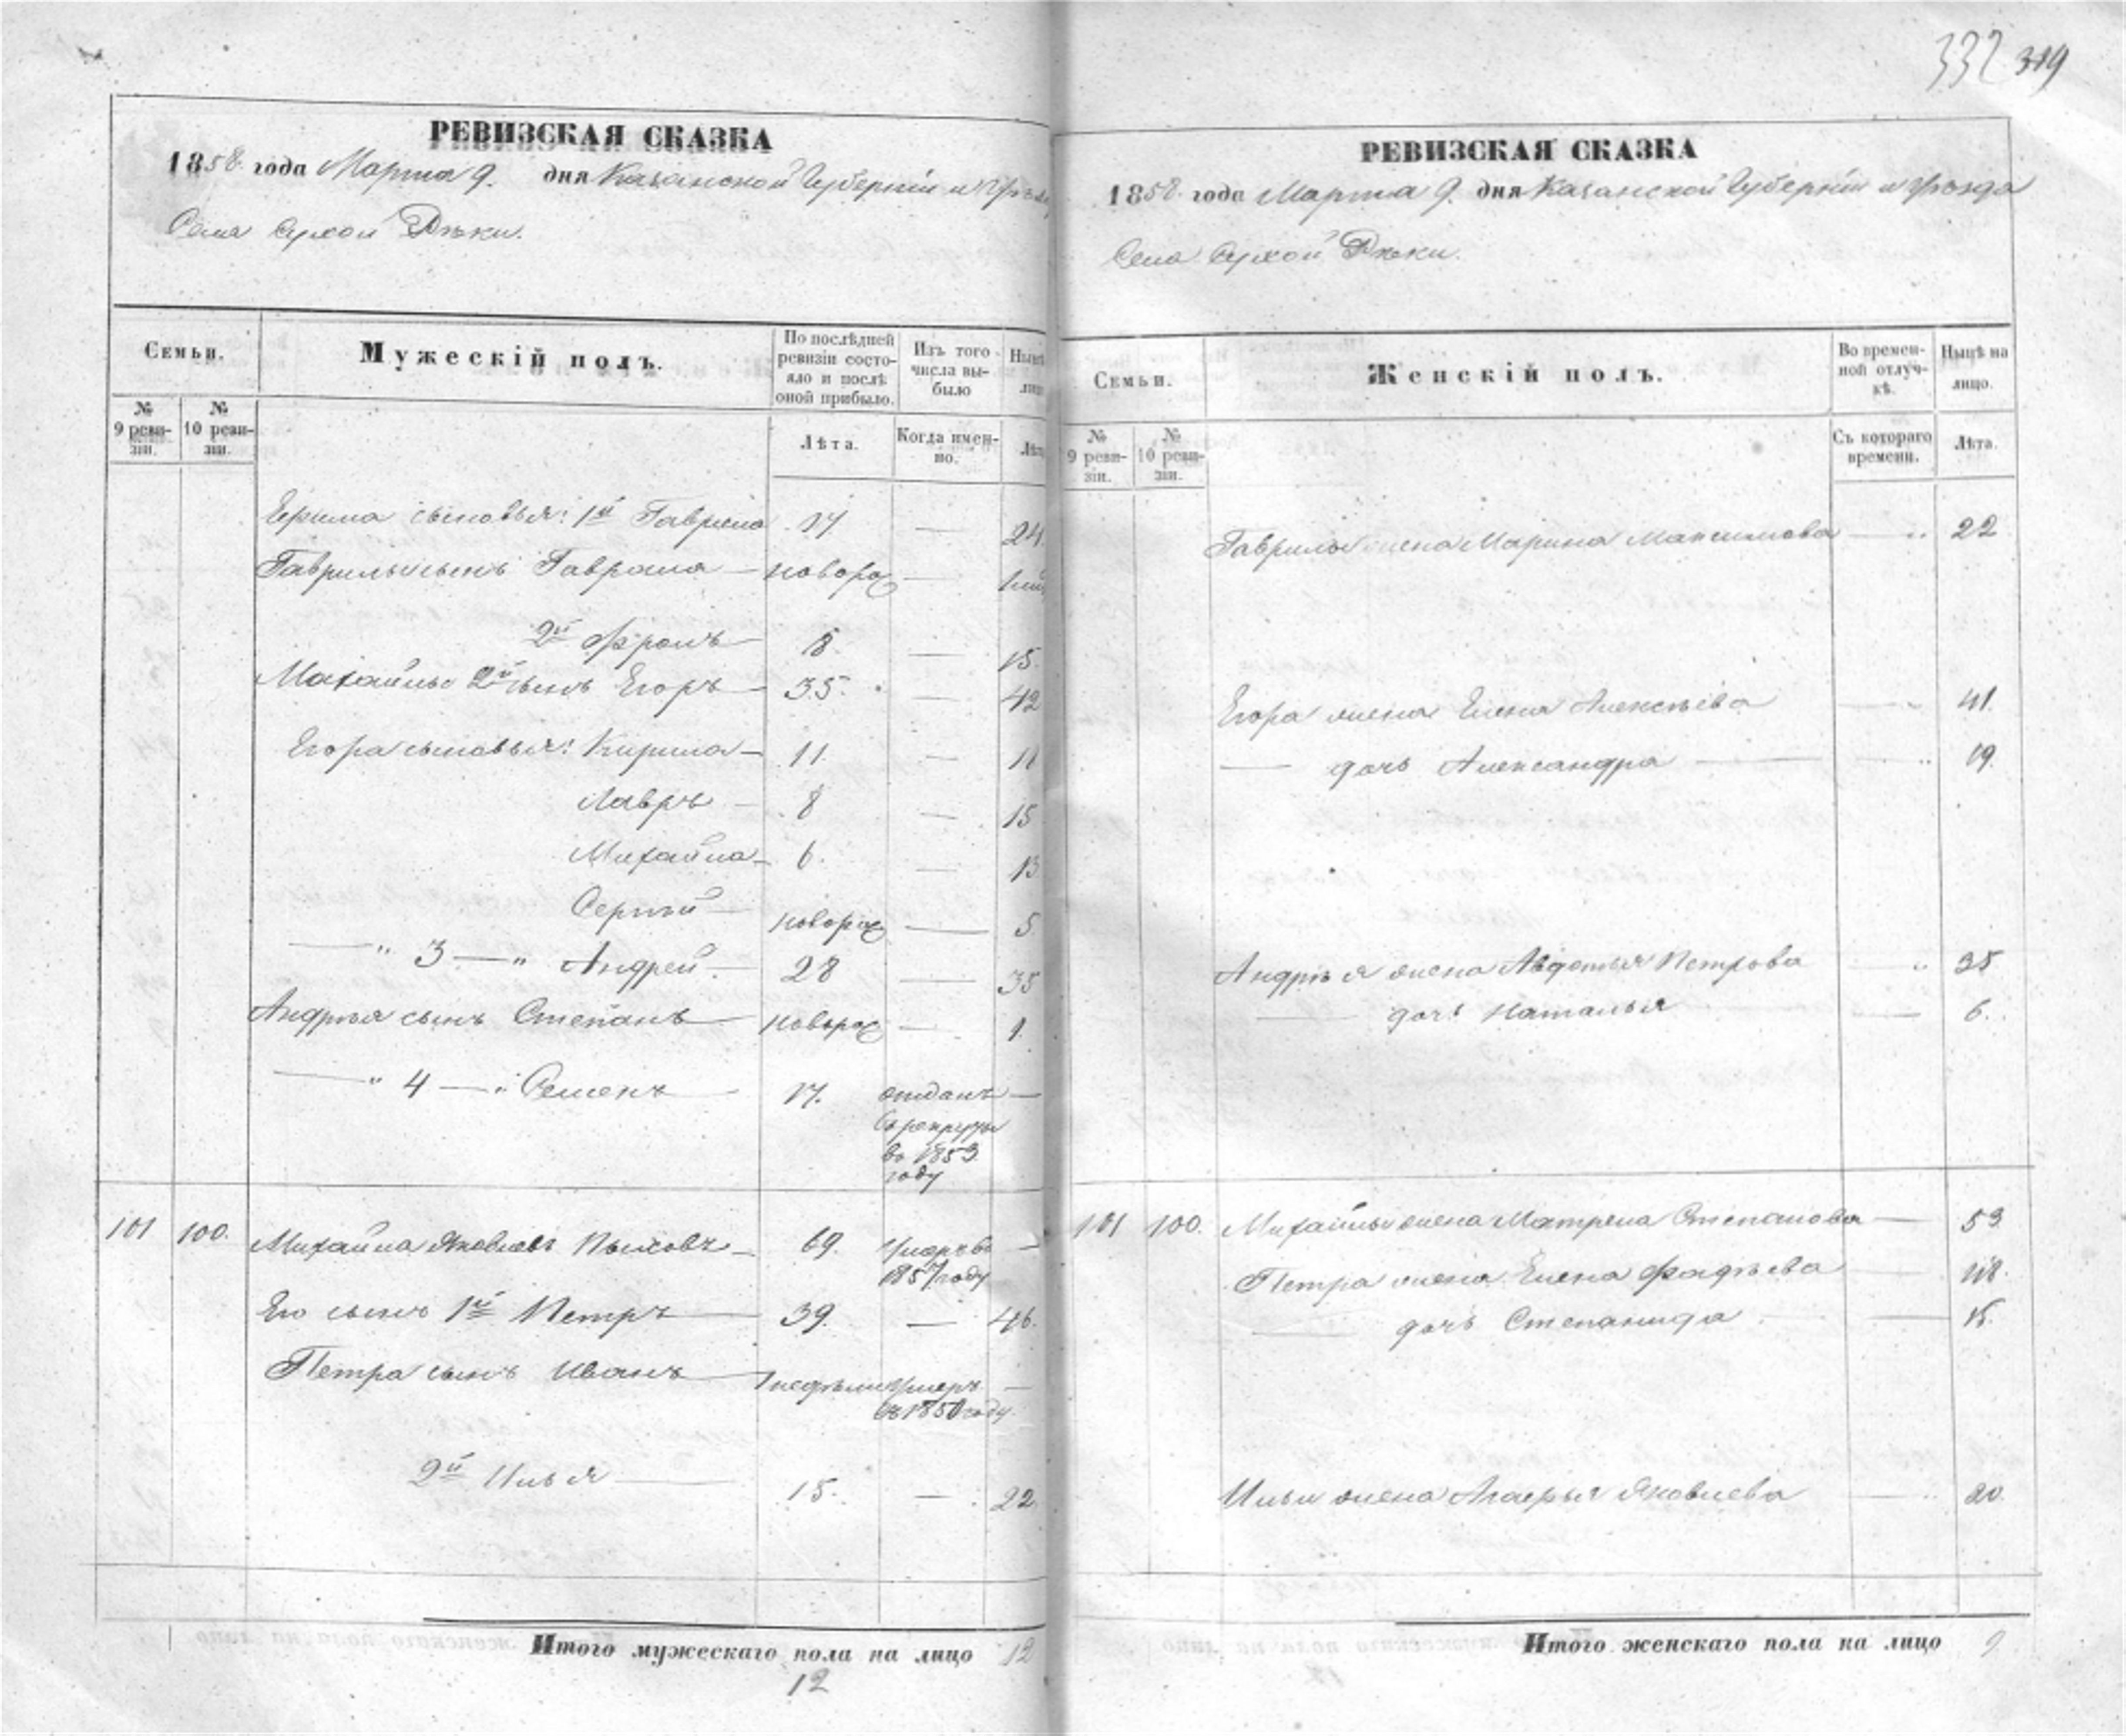 332 319
РЕВИЗСКАЯ СКАЗКА
1858 года Марта 9. дня Казанской Губерніи и Уѣзда
Села Сухой Рѣки.
Семьи.
Мужескій полъ.
По послѣдней ревизіи состо-
яло и послѣ
оной прибыло.
Изъ того
числа вы-
было
№
9 реви-
зіи.
№
10 реви-
зіи.
Лѣта.
Когда имен-
но.
Ефима сыновья: 1й Гаврила 17 — 24
Гаврилы сынъ Гаврила — новорож —
2й Фролъ — 8 — 15.
Михайлы 2й сынъ Егоръ — 35. — 42
Егора сыновья: Кирила — 11. — 18
Лавръ — 8 — 15
Михайла — 6. — 13
Сергѣй — новорож — 5
— " 3 — " Андрей. — 28 — 35
Андрея сынъ Степанъ — новорож — 1.
— " 4 — " Семенъ — 17. отданъ —
въ рекруты
въ 1853
году
101 100. Михайла Яковлевъ — 69. умеръ въ —
1857 году
Его сынъ 1й Петръ — 39. — 46.
Петра сынъ Иванъ — недѣли умеръ —
въ 1850 году.
2й Илья — 15. — 22.
Итого мужескаго пола на лицо 12
12
РЕВИЗСКАЯ СКАЗКА
1858 года Марта 9. дня Казанской Губерніи и Уѣзда
Села Сухой Рѣки.
Семьи.
Женскій полъ.
Во времен-
ной отлуч-
кѣ.
Нынѣ на
лицо.
№
9 реви-
зіи.
№
10 реви-
зіи.
Съ котораго
времени.
Лѣта.
Гаврилы жена Марина Максимова — 22
Егора жена Елена Алексѣева — 41.
— дочь Александра — 19.
Андрѣя жена Авдотья Петрова — 35
— дочь Наталья — 6.
101 100. Михайлы жена Матрена Степанова — 53.
Петра жена Елена Фадѣева — 48.
— дочь Степанида — 15.
Ильи жена Агафья Яковлева — 20.
Итого женскаго пола на лицо 9